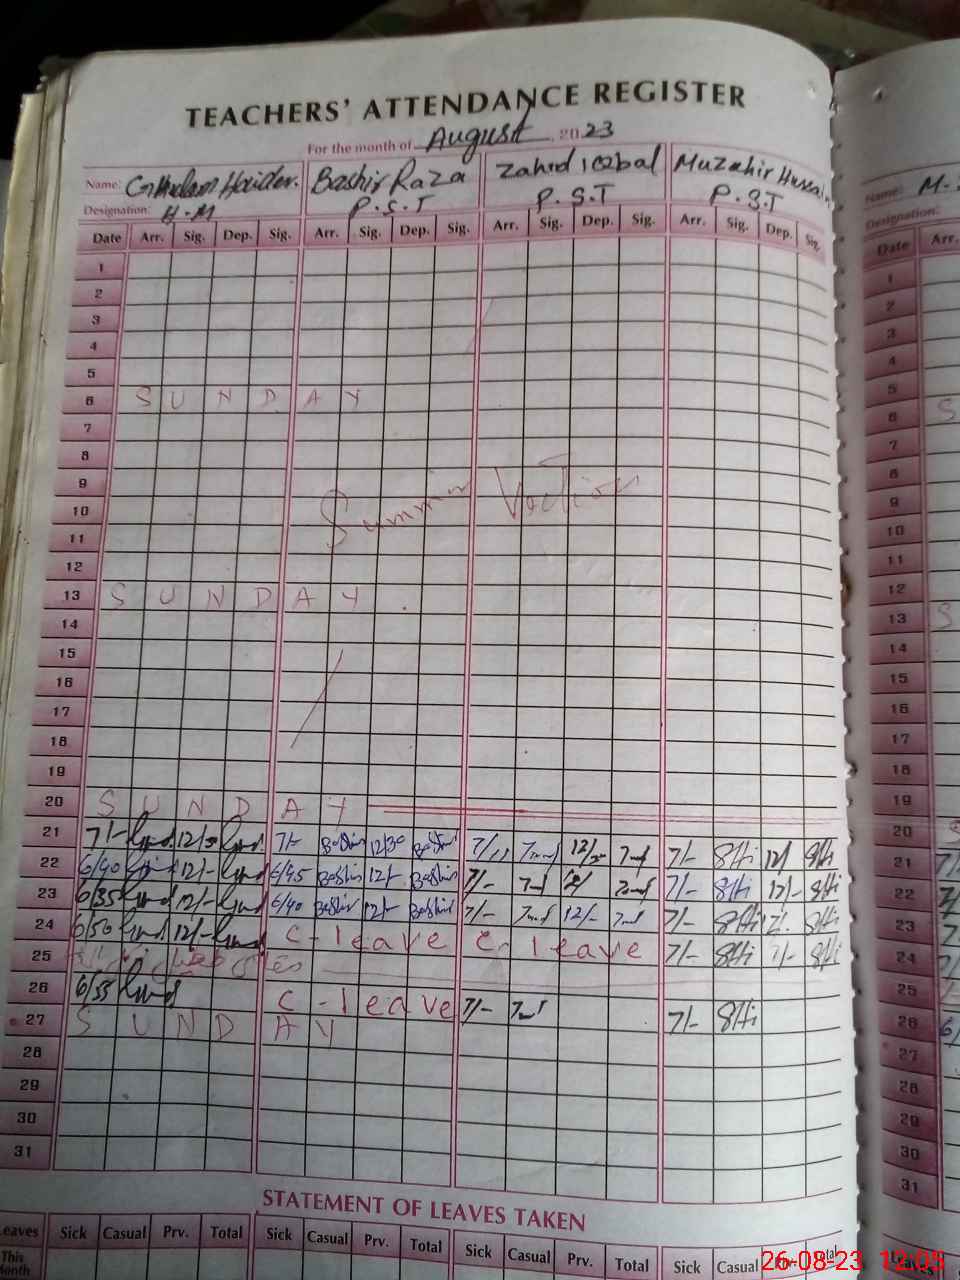 TEACHERS' ATTENDANCE REGISTER
For the month of August, 2023
Name: Ghulam Haider. Bashir Raza Zahid iqbal Muzahir Hussain
Designation: H.M P.S.T P.S.T P.S.T
Date Arr. Sig. Dep. Sig. Arr. Sig. Dep. Sig. Arr. Sig. Dep. Sig. Arr. Sig. Dep. Sig.
1
2
3
4
5
6 SUNDAY
7
8
9
10 Summer Vection
11
12
13 SUNDAY
14
15
16
17
18
19
20 SUNDAY
21 7/- 12/30 7/- Bashir 12/30 Bashir 7/- 12/30 7/- 12/
22 6/40 12/- 6/45 Bashir 12/- Bashir 7/- 12/ 7/- 12/-
23 6/35 12/- 6/40 Bashir 12/- Bashir 7/- 12/- 7/- 12/
24 6/50 12/- C-leave C leave 7/-
25
26 6/55 C-leave 7/- 7/-
27 SUNDAY
28
29
30
31
STATEMENT OF LEAVES TAKEN
Leaves Sick Casual Prv. Total Sick Casual Prv. Total Sick Casual Prv. Total Sick Casual Prv. Total
This Month
Name: M.
Designation:
Date Arr.
1
2
3
4
5
6 S
7
8
9
10
11
12
13 S
14
15
16
17
18
19
20
21
22
23
24
25
26
27
28
29
30
31
Leaves
26-08-23 12:05